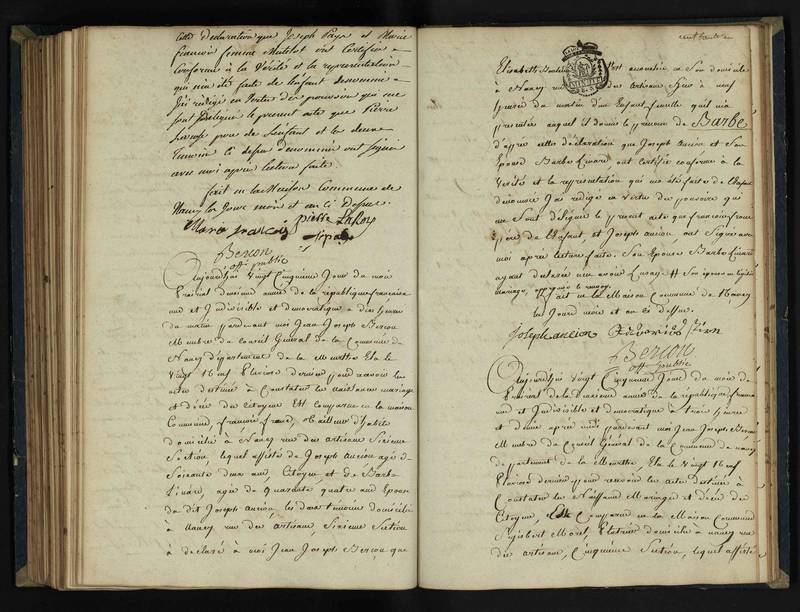 Cette Declaration que Joseph Paye et Marie
François femme Mutelot ont Certifiée
Conforme à la Vérité et la représentation
qui m'a été faite de l'enfant denommé
j'ai rédigé en Vertu des pouvoirs qui me
sont délégués le present acte que Pierre
pere de l'enfant et les deux
témoins ci dessus denommés ont signés
avec moi après lecture faite
fait en la Maison Commune de
Nancy les Jour mois et an ci Dessus
Marie francois pierre
jpaye
Bercon
off. public
Aujourdhui Vingt Cinquieme Jour du mois
Prairial deuxieme année de la république francaise
une et Indivisible et democratique a dix heures
du matin pardevant moi Jean Joseph Bercon
Membre du Conseil Général de la Commune de
Nancy département de la Meurthe Elu le
Vingt 16 neuf Pluviose dernier pour recevoir les
actes destinés à Constater les naissances mariages
et décès des Citoyens Est comparu en la maison
Commune, françois, tailleur d'habits
domicilié à Nancy rue des artisans Sixieme
Section, lequel assisté de Joseph ancion agé de
Soixante deux ans, Citoyen, et de Barbe
Linard, agée de quarante quatre ans Epouse
du dit Joseph Ancion les deux témoins domiciliés
à Nancy rue des artisans, Sixieme Section
à declaré à moi Jean Joseph Bercon, que
Elisabeth est accouchée en Son domicile
à Nancy rue des artisans hier à neuf
heures du matin d'un Enfant femelle quil m'a
présenté auquel il donne le prenom de Barbe
d'apres cette déclaration que Joseph Ancion et Son
Epouse Barbe Linard ont certifiée conforme à la
Vérité et la représentation qui m'a été faite de l'Enfant
denommée J'ai rédigé en Vertu des pouvoirs qui
me Sont délégués le present acte que francois
pere de l'Enfant, et Joseph ancion, ont Signé avec
moi apres lecture faite. Son Epouse Barbe Linard
ayant déclarée ne avoir l'usage # Son épouse en légitime
mariage, approuvé le renvoy.
Fait en la Maison Commune de Nancy
les Jours mois et an ci dessus
Joseph ancion
Bercon
off. public
Aujourdhui Vingt Cinquieme Jour du mois de
Prairial de la Deuxieme année de la république francaise
une et Indivisible et democratique à trois heures
et demie après midi pardevant moi Jean Joseph Bercon
Membre du Conseil Général de la Commune de nancy
département de la Meurthe, Elu le Vingt 16 neuf
Pluviose dernier pour recevoir les actes destinés à
Constater les Naissances Mariages et décès des
Citoyens, Est Comparu en la Maison Commune
Sigisbert Morel, Platrier domicilié à nancy rue
des artisans, Cinquieme Section, lequel assisté